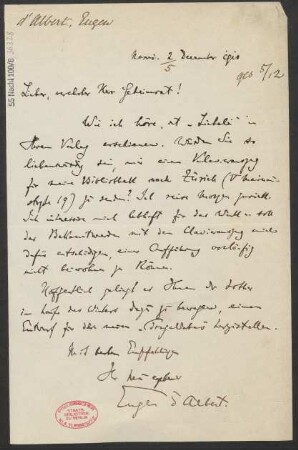 d'Albert, Eugen
55 Nachl 100/B,
ges 5/12
2/5 December 1910
Lieber, verehrter Herr Geheimrat!
Wie ich höre, ist
Ihrem Verlag erschienen. Würden Sie so
liebenswürdig sein, mir einen Klavierauszug
für meine Bibliothek nach Zürich
19) zu senden? Ich reise morgen zurück.
Ich interessiere mich lebhaft für das Werk u. soll
das Bekanntwerden mit dem Clavierauszug mich
dafür entschädigen, einer Aufführung vorläufig
nicht beiwohnen zu können.
Hoffentlich gelingt es Ihnen
im Laufe des Winters dazu zu bewegen, einen
Entwurf für den neuen herzustellen.
Mit besten Empfehlungen
Ihr ergebener
Eugen d'Albert.
STAATS-
BIBLIOTHEK